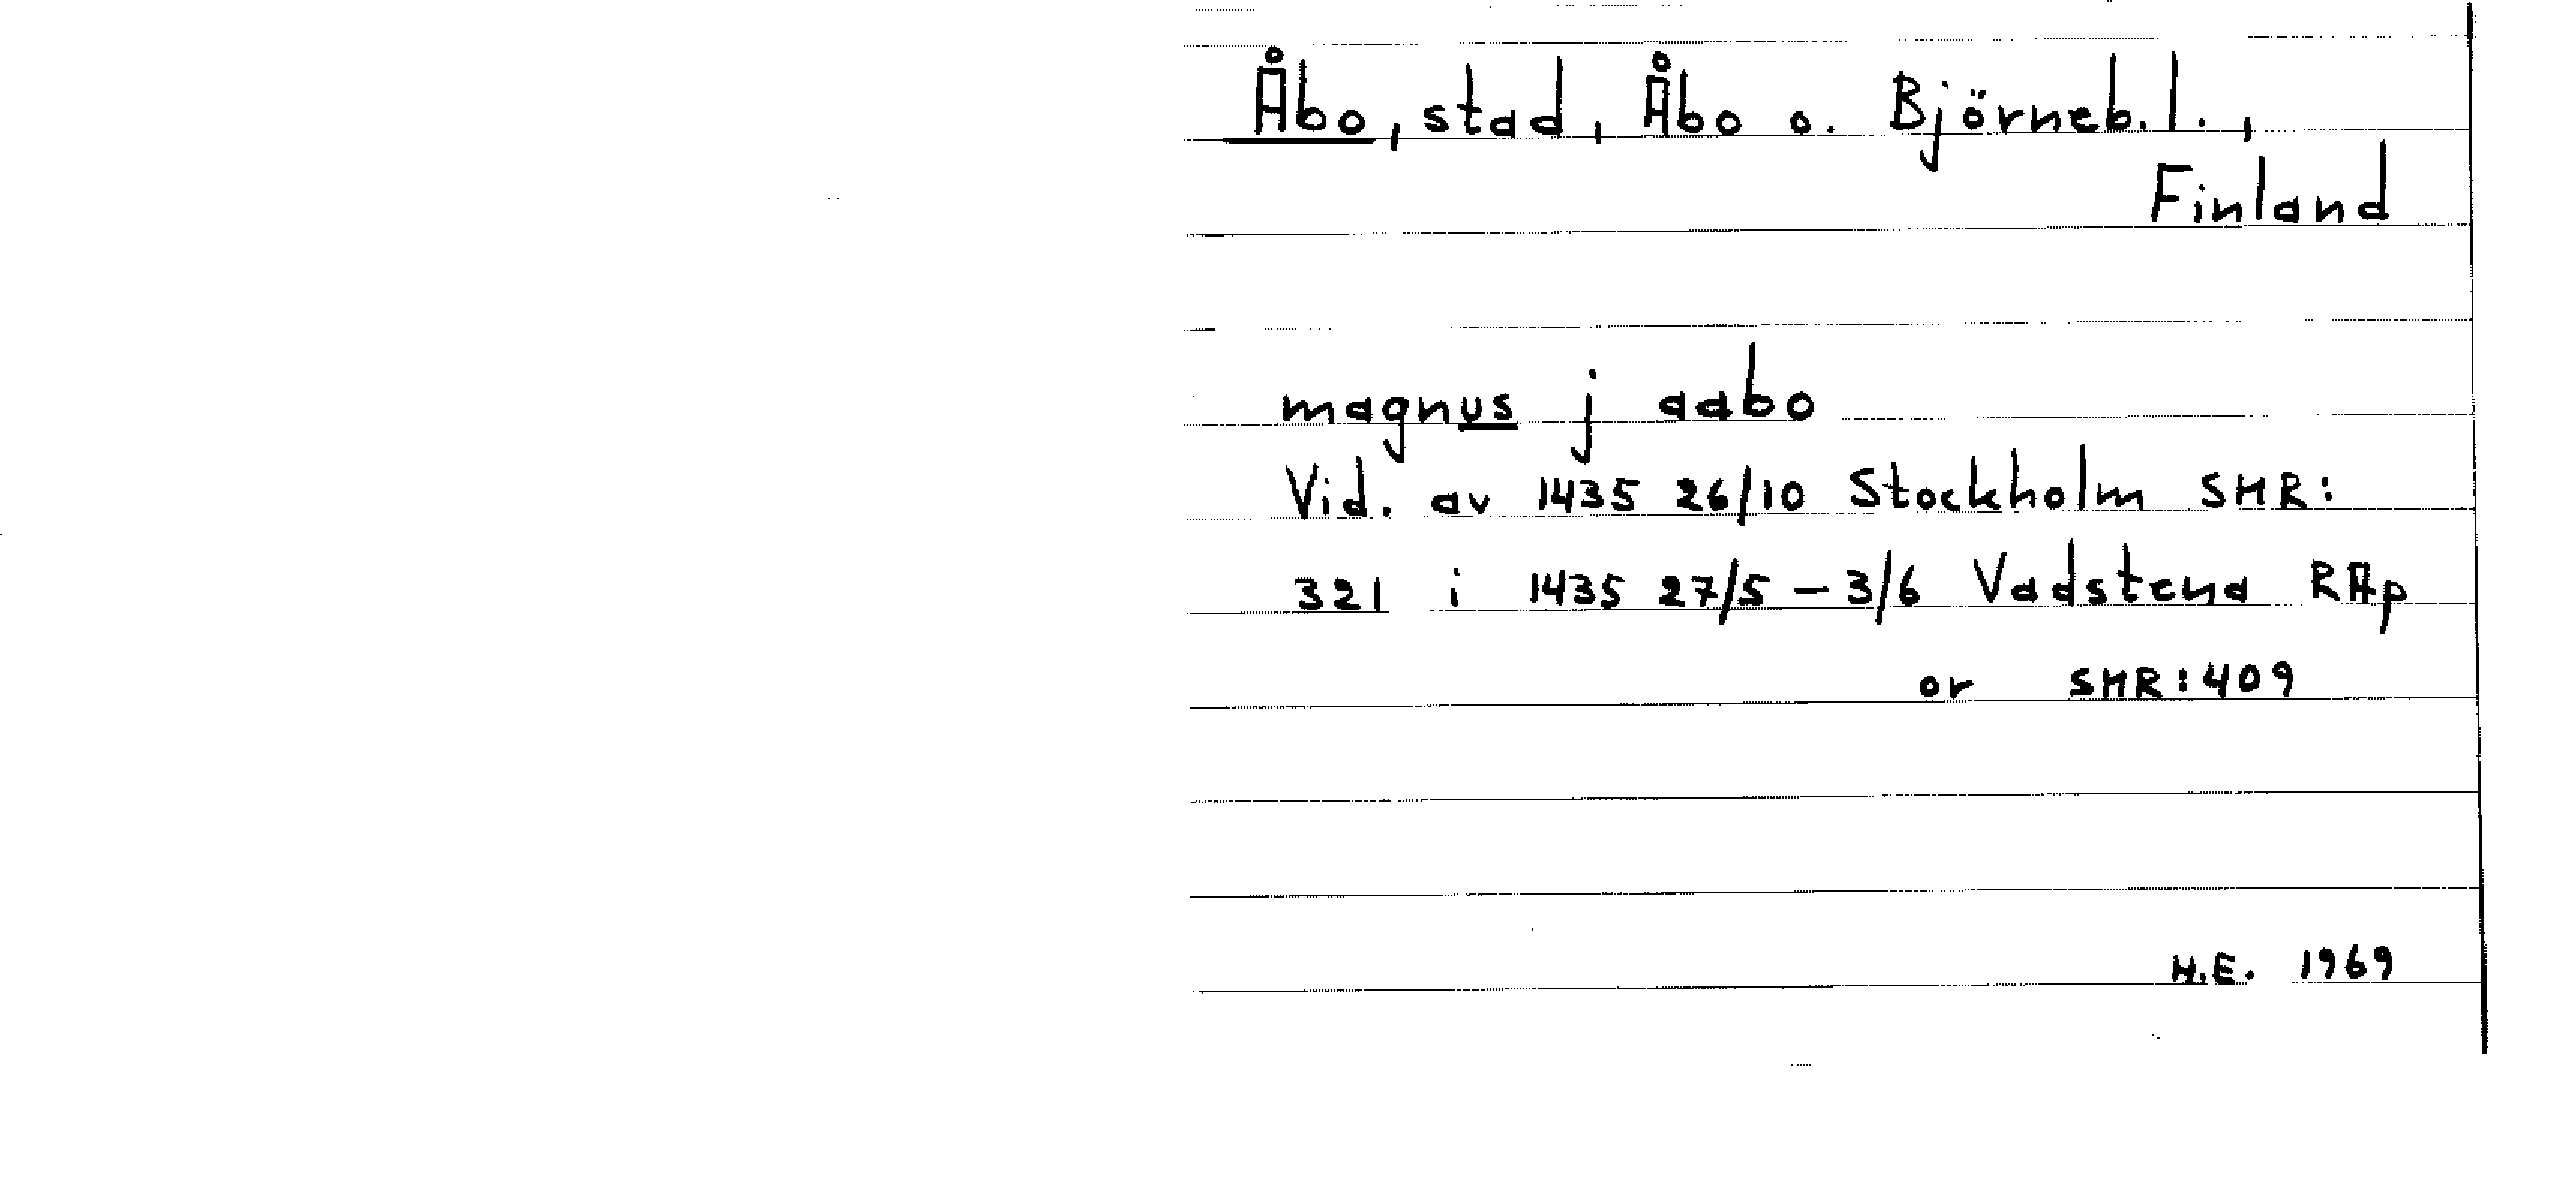 Åbo, stad, Åbo o. Björneb. l.,
Finland
magnus j aabo
Vid. av 1435 26/10 Stockholm SMR:
321 i 1435 27/5 – 3/6 Vadstena RAp
or SMR: 409
H.E. 1969